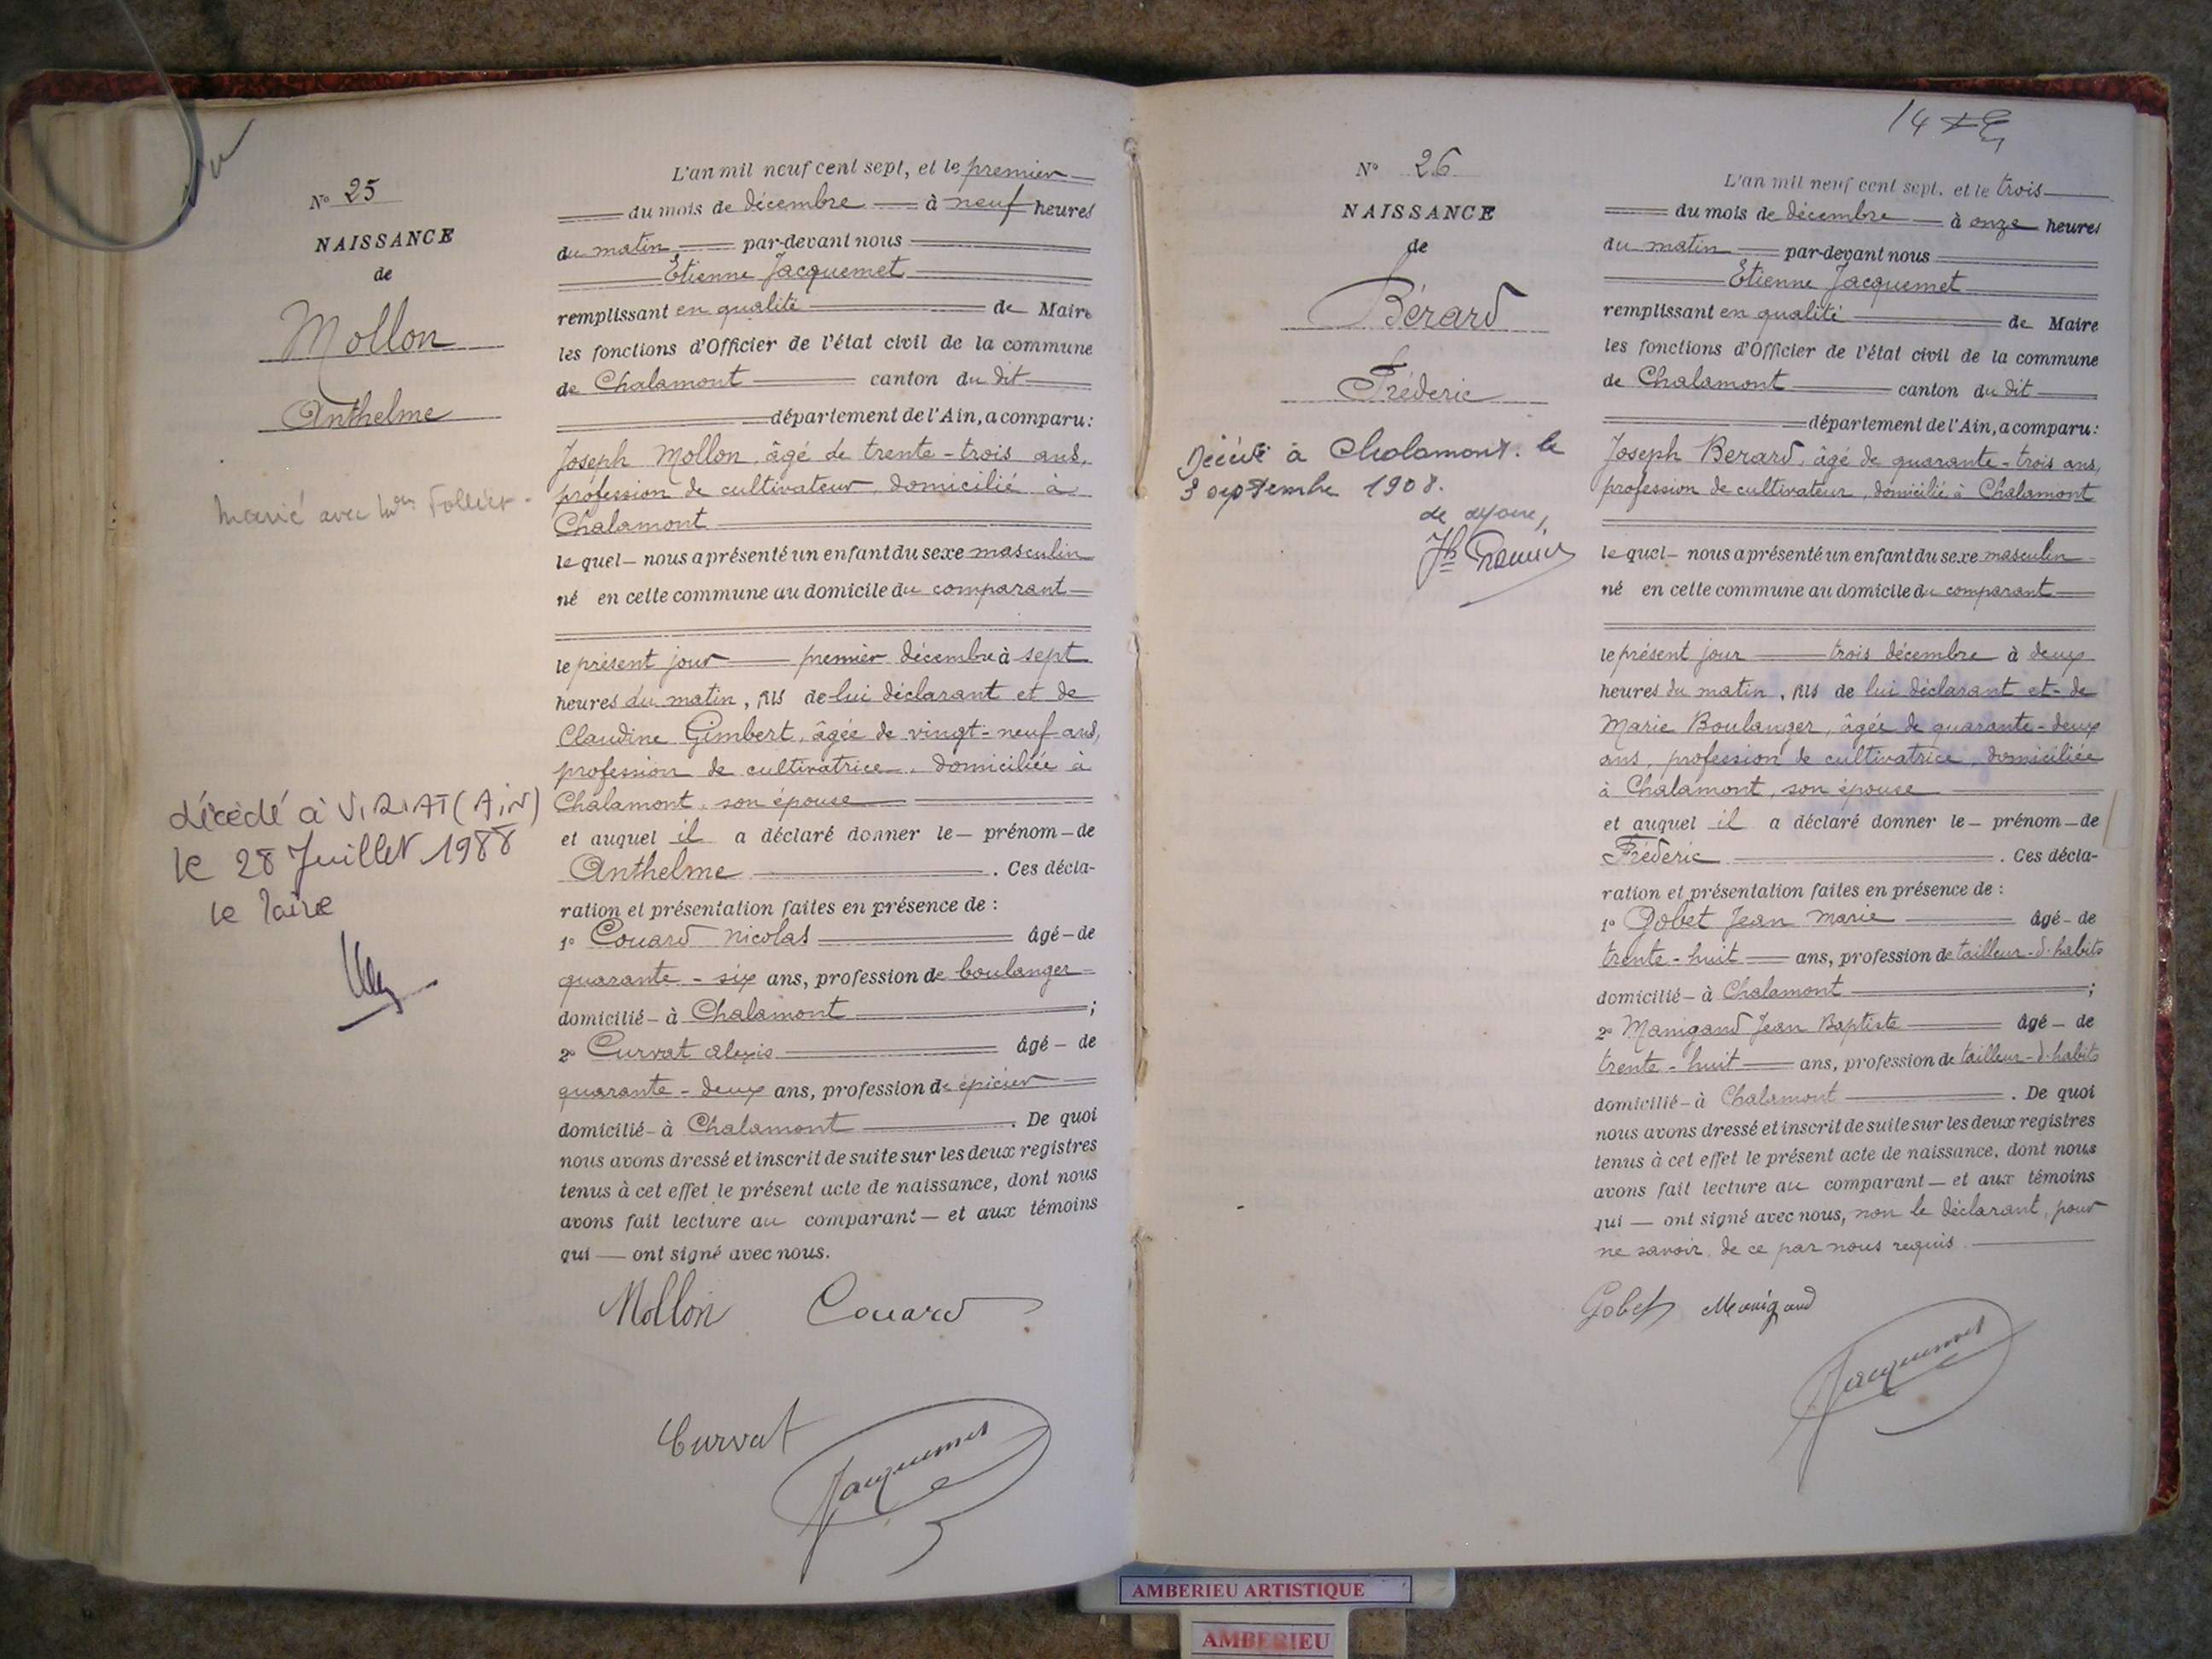 N° 25
NAISSANCE
de
Mollon
Anthelme
Marié avec
décédé à VIRIAT (AiN)
le 28 Juillet 1988
le
L'an mil neuf cent sept, et le premier
du mois de décembre à neuf heures
du matin par-devant nous
Etienne Jacquemet
remplissant en qualité de Maire
les fonctions d'Officier de l'état civil de la commune
de Chalamont canton du dit
département de l'Ain, a comparu:
Joseph Mollon, âgé de trente-trois ans,
profession de cultivateur, domicilié à
Chalamont
lequel nous a présenté un enfant du sexe masculin
né en cette commune au domicile du comparant
le présent jour premier décembre à sept
heures du matin, fils de lui déclarant et de
Claudine Gimbert, âgée de vingt-neuf ans,
profession de cultivatrice, domiciliée à
Chalamont, son épouse
et auquel il a déclaré donner le prénom de
Anthelme. Ces décla-
ration et présentation faites en présence de :
1° Couard Nicolas âgé de
quarante-six ans, profession de boulanger
domicilié à Chalamont ;
2° Curvat Alexis âgé de
quarante-deux ans, profession de épicier
domicilié à Chalamont. De quoi
nous avons dressé et inscrit de suite sur les deux registres
tenus à cet effet le présent acte de naissance, dont nous
avons fait lecture au comparant et aux témoins
qui ont signé avec nous.
Mollon Couard
Curvat
Jacquemet
14
N° 26
NAISSANCE
de
Bérard
Fréderic
Décédé à Chalamont. le
3 septembre 1908.
L'an mil neuf cent sept, et le trois
du mois de décembre à onze heures
du matin par-devant nous
Etienne Jacquemet
remplissant en qualité de Maire
les fonctions d'Officier de l'état civil de la commune
de Chalamont canton du dit
département de l'Ain, a comparu:
Joseph Berard, âgé de quarante-trois ans,
profession de cultivateur, domicilié à Chalamont
lequel nous a présenté un enfant du sexe masculin
né en cette commune au domicile du comparant
le présent jour trois décembre à deux
heures du matin, fils de lui déclarant et de
Marie Boulanger, âgée de quarante-deux
ans, profession de cultivatrice, domiciliée
à Chalamont, son épouse
et auquel il a déclaré donner le prénom de
Fréderic. Ces décla-
ration et présentation faites en présence de :
1° Gobet Jean Marie âgé de
trente-huit ans, profession de tailleur-d'habits
domicilié à Chalamont ;
2° Manigand Jean Baptiste âgé de
trente-huit ans, profession de tailleur-d'habits
domicilié à Chalamont. De quoi
nous avons dressé et inscrit de suite sur les deux registres
tenus à cet effet le présent acte de naissance, dont nous
avons fait lecture au comparant et aux témoins
qui ont signé avec nous, non le déclarant, pour
ne savoir, de ce par nous requis
Gobet Manigand
Jacquemet
AMBERIEU ARTISTIQUE
AMBERIEU